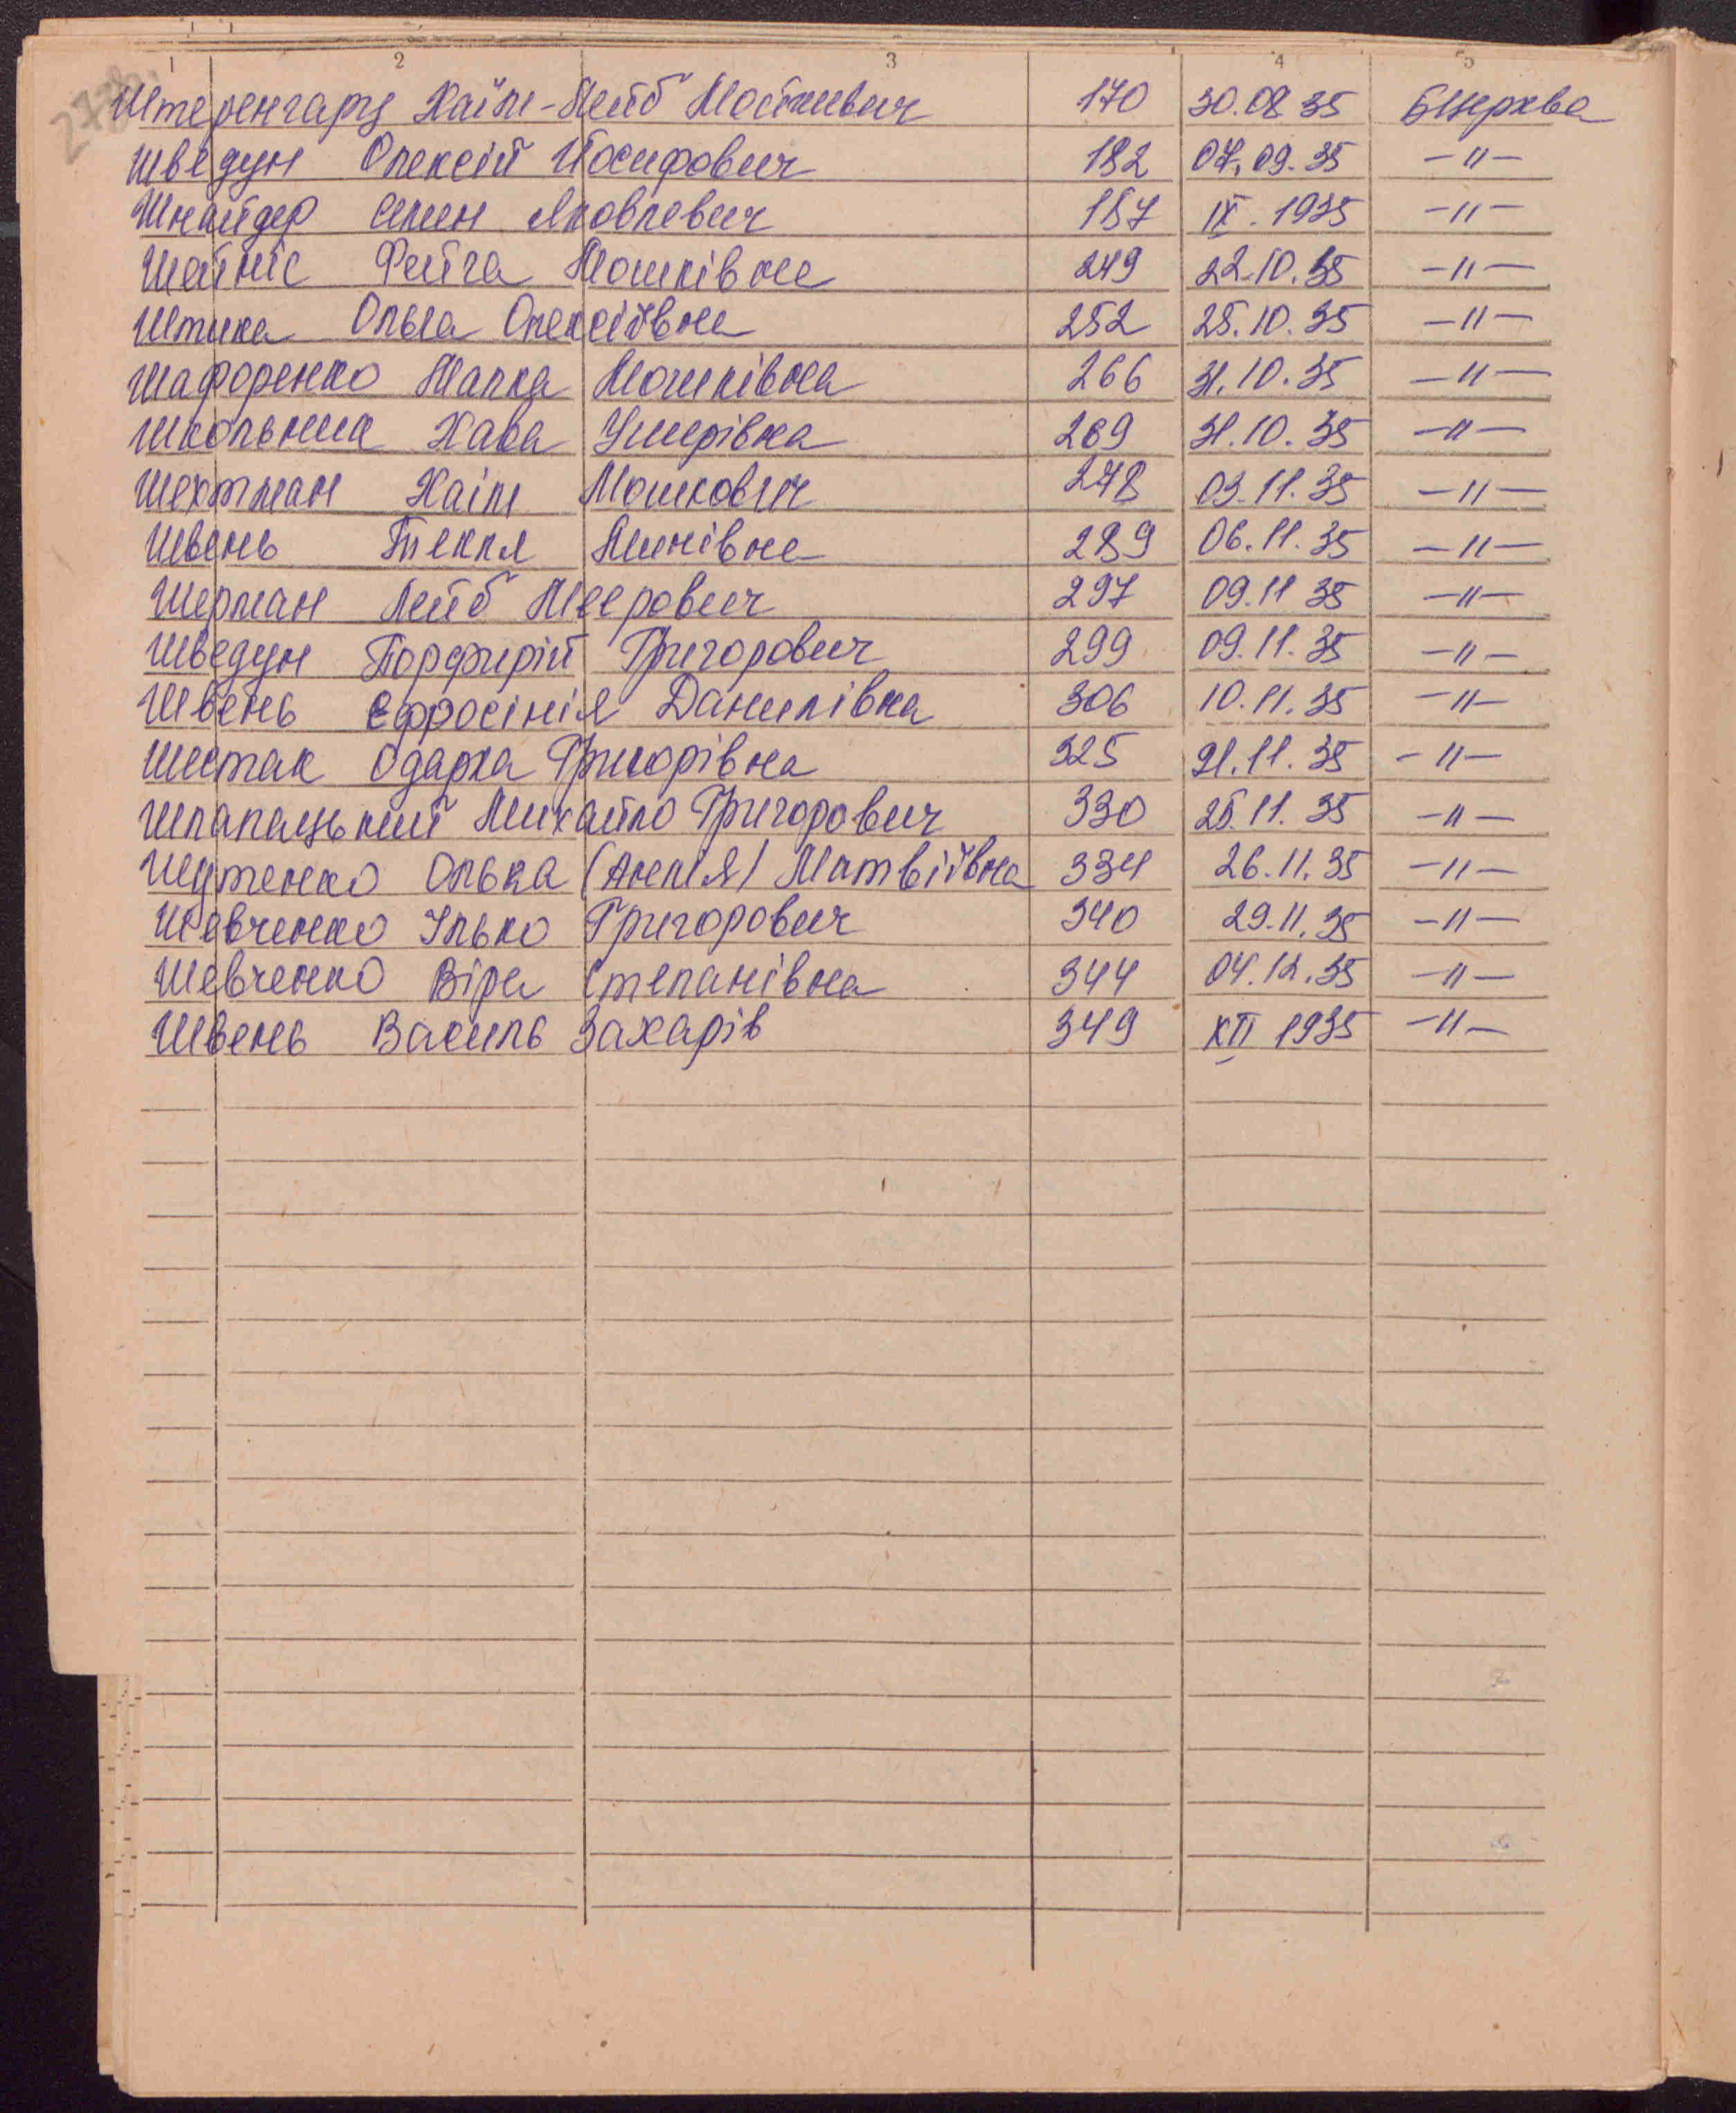 1 2 3 4 5
278.
Штеренгарц Хаїм-Лейб Мошкевич 170 30.08 35 БЦерква
Шведун Олексій Йосифович 182 07.09.35 -"-
Шнайдер Семен Яковлевич 187 IX. 1935 -"-
Шайніс Фейга Мошківна 249 22.10.35 -"-
Штика Ольга Олексіївна 252 25.10.35 -"-
Шафоренко Малка Мошківна 266 31.10.35 -"-
Школьник Хава Ушерівна 269 31.10.35 -"-
Шехтман Хаім Мошкович 278 03.11.35 -"-
Швень Текля Минівна 289 06.11.35 -"-
Шерман Лейб Меерович 297 09.11 35 -"-
Шведун Порфирій Григорович 299 09.11.35 -"-
Швень Єфросінія Данилівна 306 10.11.35 -"-
Шестак Одарка Григорівна 325 21.11.35 -"-
Шпапацький Михайло Григорович 330 25.11.35 -"-
Шутенко Олька (Анеля) Матвіївна 334 26.11.35 -"-
Шевченко Ілько Григорович 340 29.11.35 -"-
Шевченко Віра Степанівна 344 04.12.35 -"-
Швень Василь Захарів 349 XII 1935 -"-